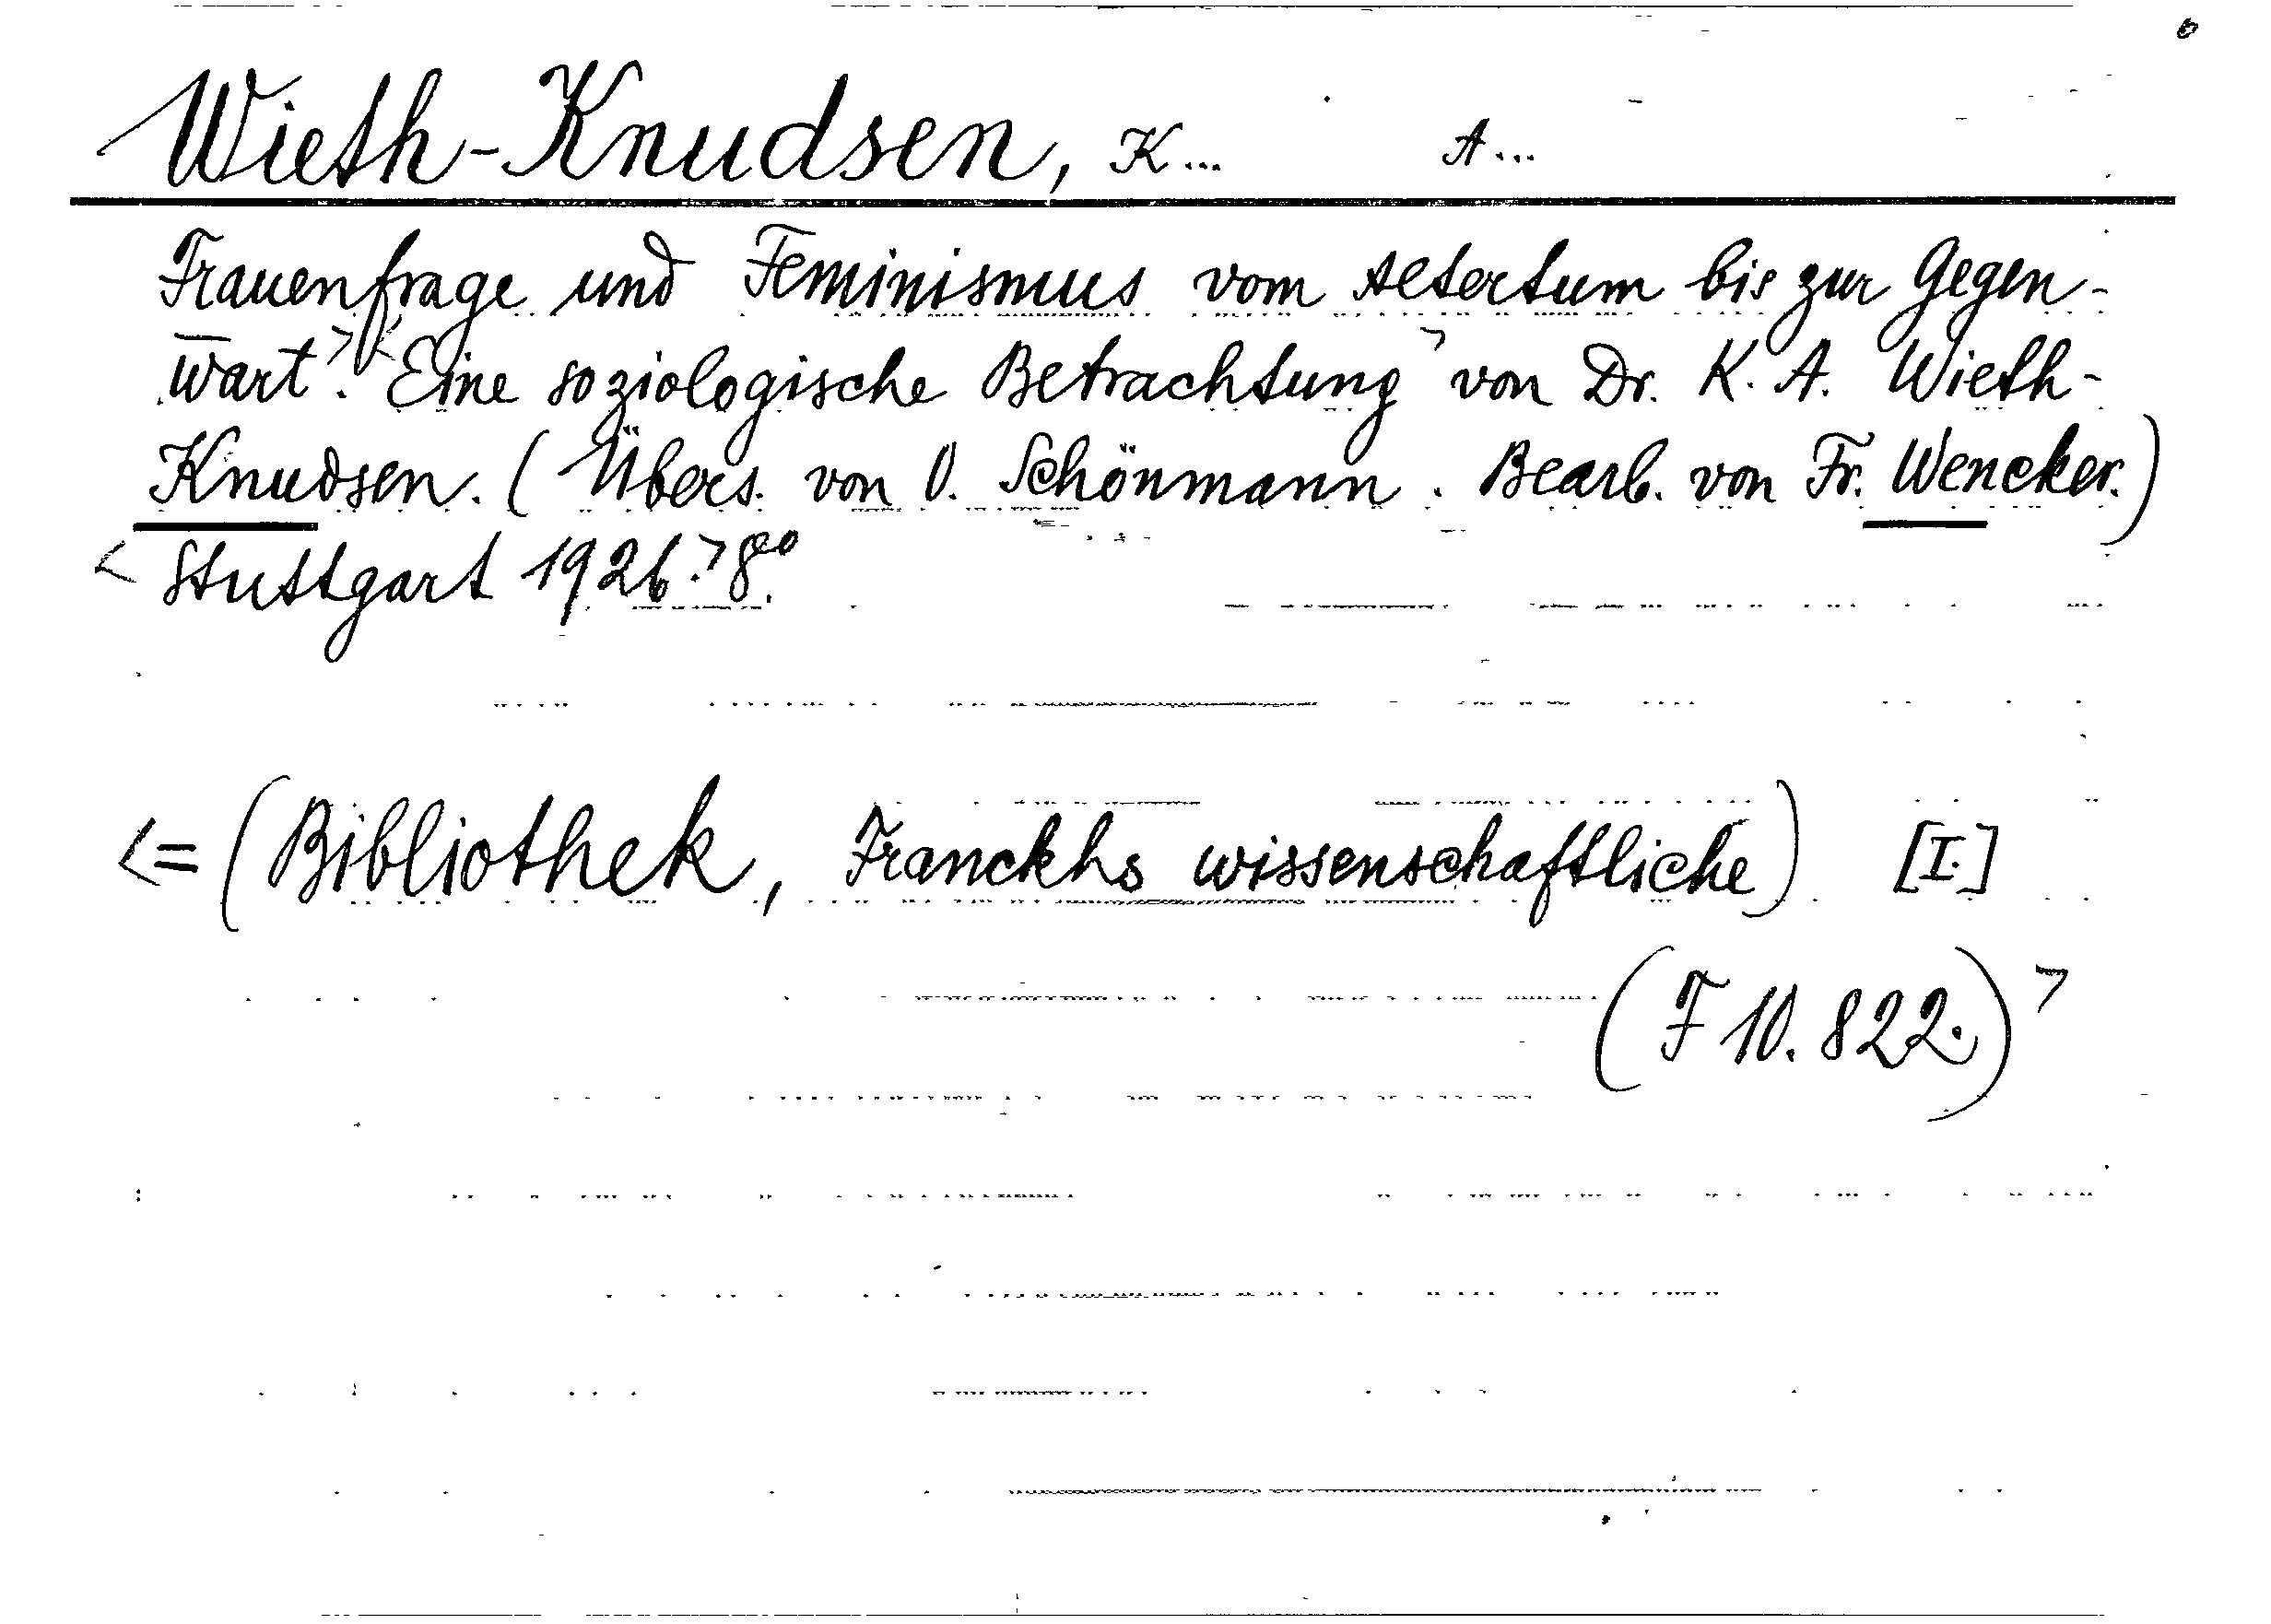 Wieth-Knudsen, K... A...
Frauenfrage und Feminismus vom Altertum bis zur Gegen-
wart.> <Eine soziologische Betrachtung> von Dr. K. A. Wieth-
Knudsen. (Übers. von O. Schönmann. Bearb. von Fr. Wencker.)
< Stuttgart 1926.> 8°.
<= (Bibliothek, Franckhs wissenschaftliche) [I.]
(F 10. 822.) >